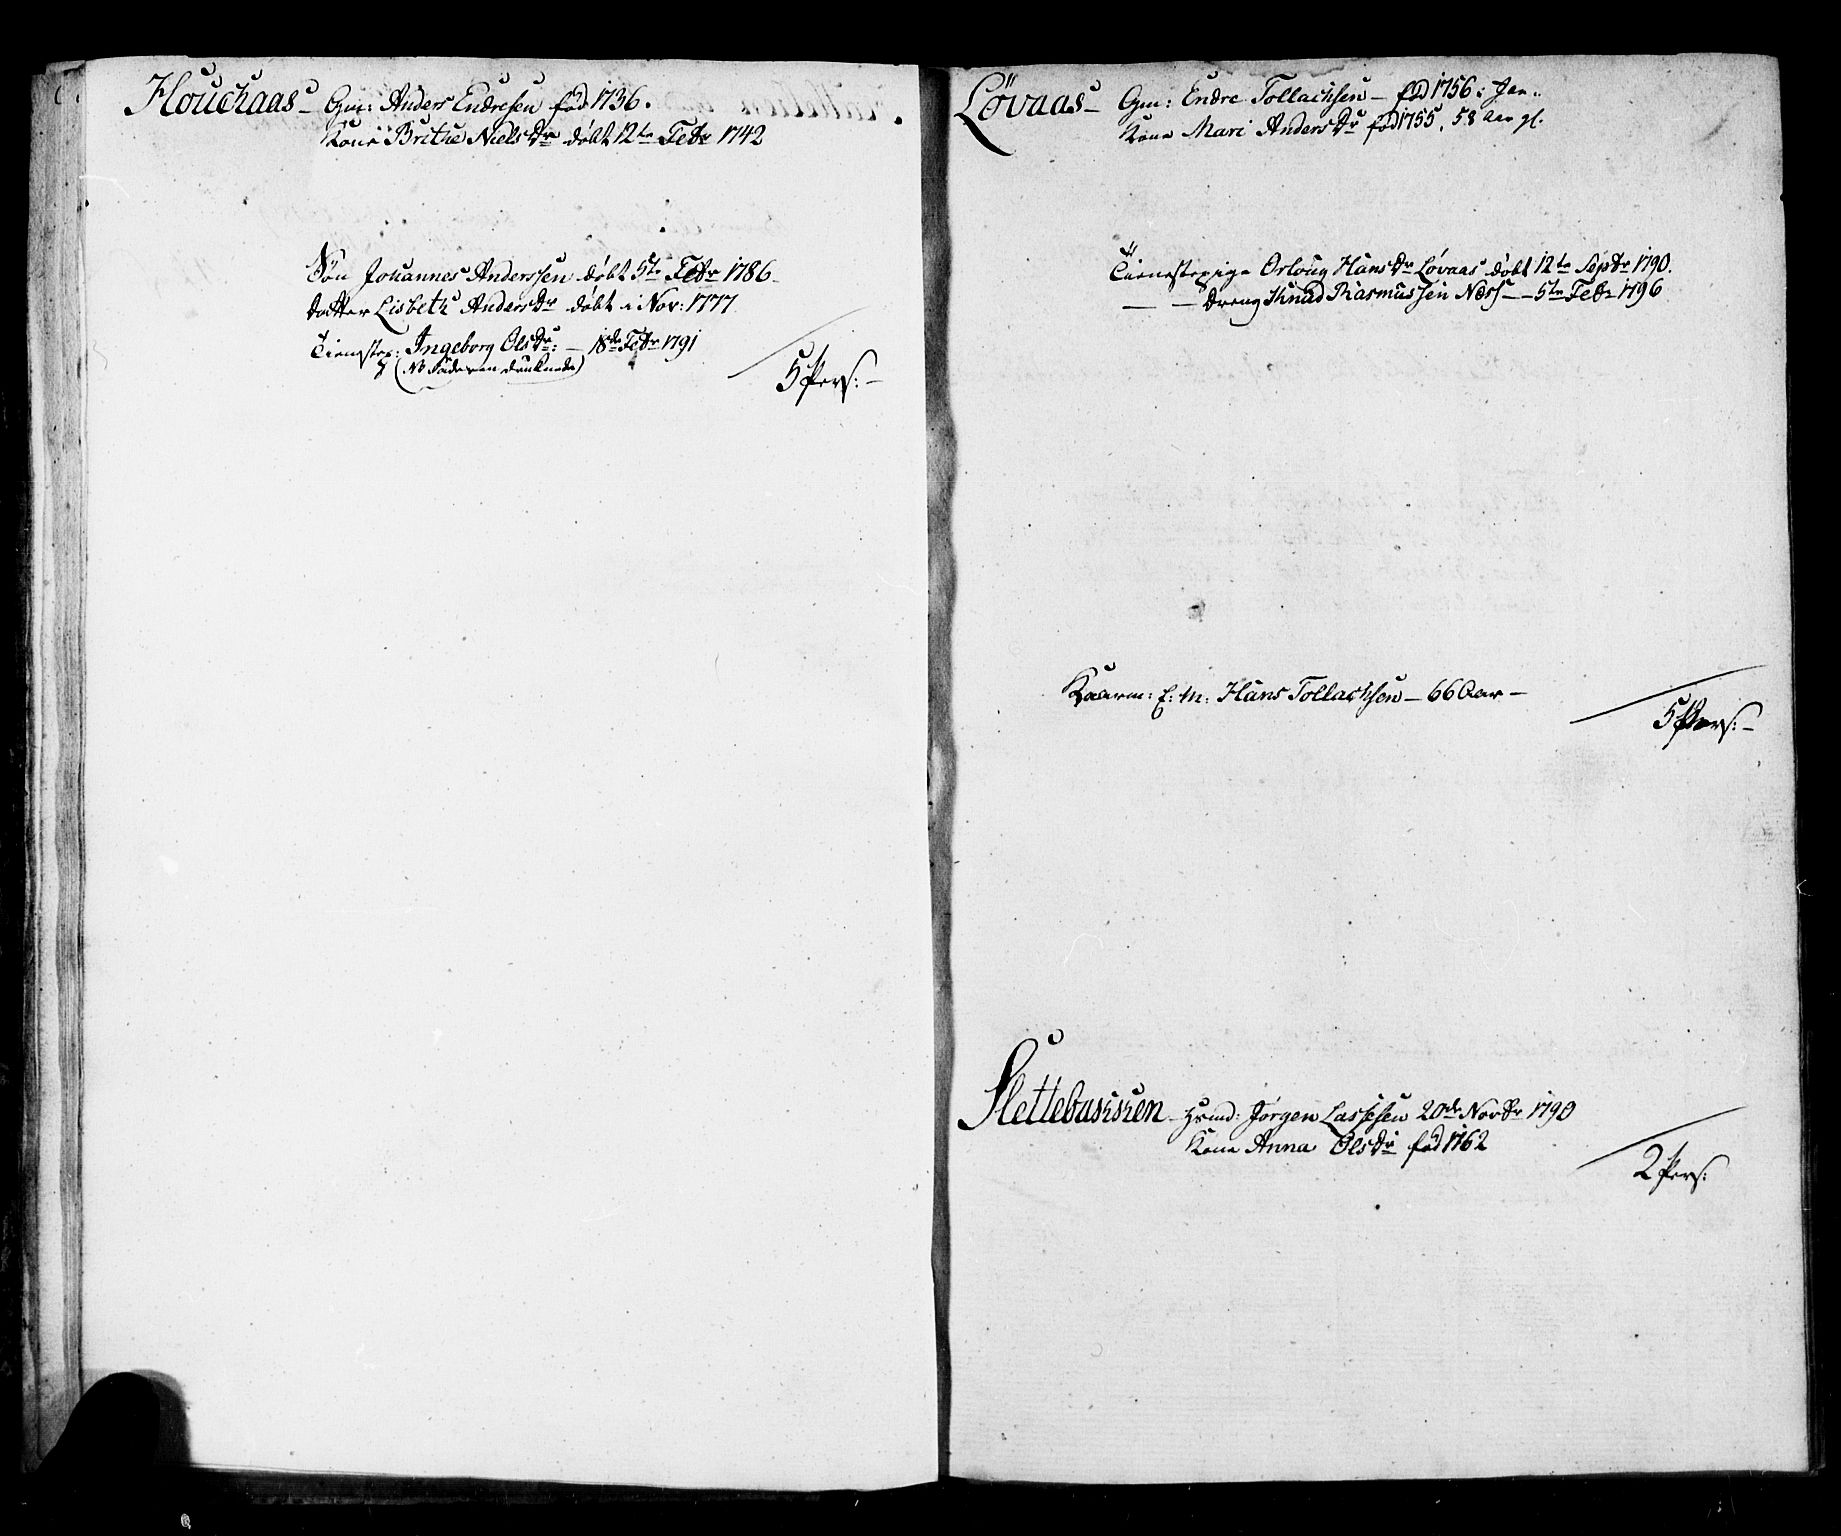 Houchaas – Gm: Anders Endresen fød 1736.
Kone Brithe Niels Dr døbt 12te Febr 1742
Søn Johannes Anderssen døbt 5te Febr 1786
datter Lisbeth Anders Dr døbt i Nov: 1777
Tienestep: Ingeborg Ols Dr: – 18de Febr 1791
(NB Faderen druknede)
5 Pers: –
Løvaas – Gm: Endre Tollachsen – fød 1756: Jan:
Kone Mari Anders Dr fød 1755, 58 Aar gl.
Tienestepige Orloug Hans Dr Løvaas døbt 12te Septr 1790.
— — dreng Knud Rasmussen Næss – – 5te Febr 1796
Kaarm: E: M: Hans Tollachsen – 66 Aar –
5 Pers: –
Slettebakken – Hsmd: Jørgen Lassesen 20de Novbr 1790
Kone Anna Ols Dr fød 1762
2 Pers: